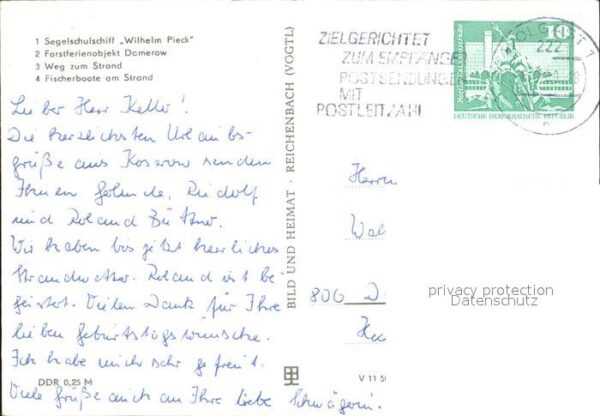 1 Segelschulschiff „Wilhelm Pieck"
2 Forstferienobjekt Damerow
3 Weg zum Strand
4 Fischerboote am Strand
Lieber Herr Keller!
Die herzlichsten Urlaubs-
grüße aus Koserow senden
Ihnen Gerlinde, Rudolf
und Roland Büttner.
Wir haben bis jetzt herrliches
Strandwetter. Roland ist be-
geistert. Vielen Dank für Ihre
lieben Geburtstagswünsche.
Ich habe mich sehr gefreut.
Viele Grüße auch an Ihre liebe Schwägerin.
DDR 0,25 M
BILD UND HEIMAT · REICHENBACH (VOGTL)
V 11 5
ZIELGERICHTET
ZUM EMPFÄNGER
POSTSENDUNGEN
MIT
POSTLEITZAHL
WOLGAST 1
222
10
DEUTSCHE DEMOKRATISCHE REPUBLIK
Herrn
Wal
806 D
privacy protection
Datenschutz